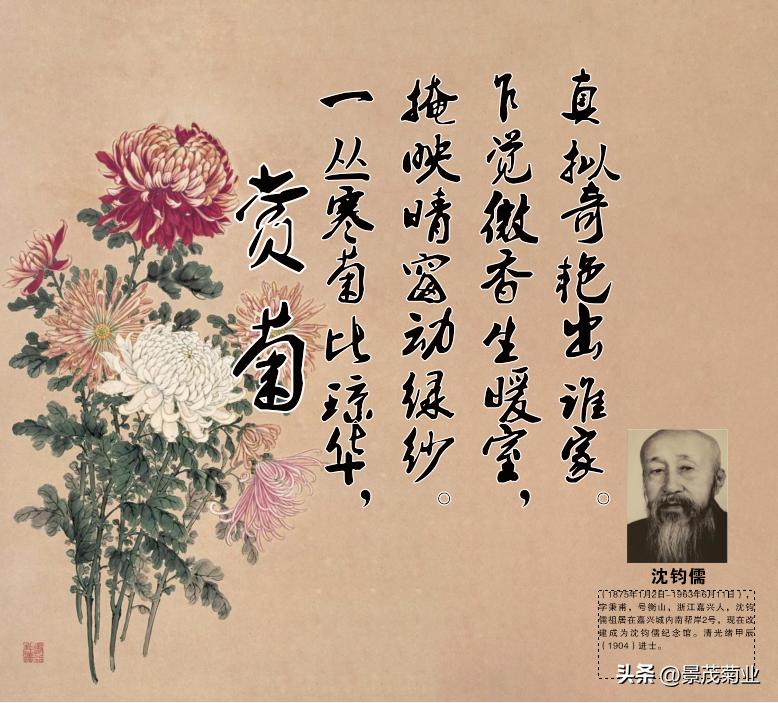 赏菊
一丛寒菊比琼华，
掩映晴窗动绿纱。
乍觉微香生暖室，
真拟奇艳出谁家。
沈钧儒
（1875年1月2日-1963年6月11日），
字秉甫，号衡山，浙江嘉兴人，沈钧
儒祖居在嘉兴城内南帮岸2号，现在改
建成为沈钧儒纪念馆。清光绪甲辰
（1904）进士。
头条 @景茂菊业